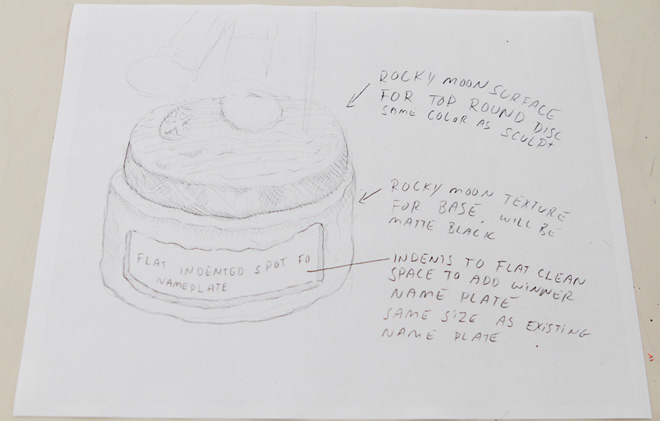 ROCKY MOON SURFACE
FOR TOP ROUND DISC
SAME COLOR AS SCULPT
ROCKY MOON TEXTURE
FOR BASE, WILL BE
MATTE BLACK
FLAT INDENTED SPOT FO
NAMEPLATE
INDENTS TO FLAT CLEAN
SPACE TO ADD WINNER
NAME PLATE
SAME SIZE AS EXISTING
NAME PLATE